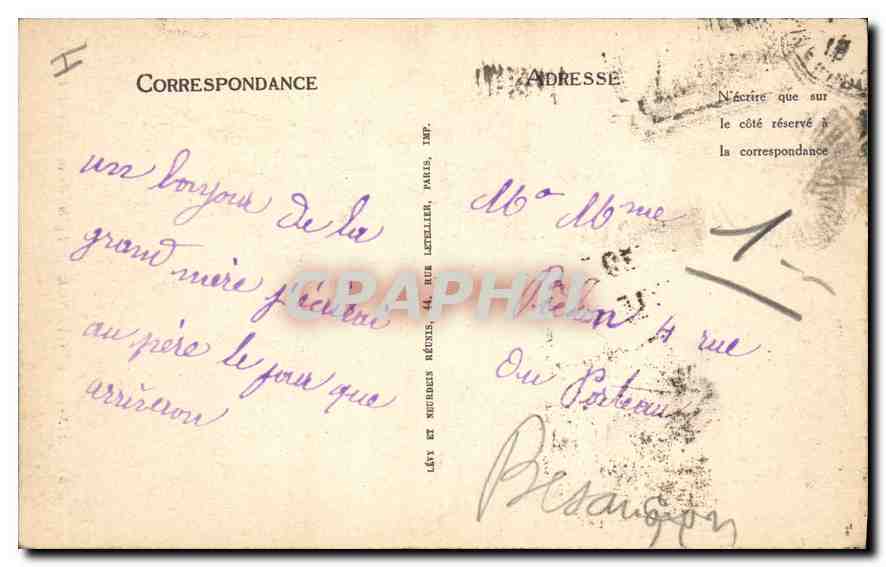 H
CORRESPONDANCE
ADRESSE
N'écrire que sur
le côté réservé à
la correspondance
un bonjour de la
grand mère
au père le jour que
arriveron
LÉVY ET NEURDEIN RÉUNIS, 44, RUE LETELLIER, PARIS, IMP.
Mr Mme
4 rue
du Porteau
Besançon
1
CPAPHIL